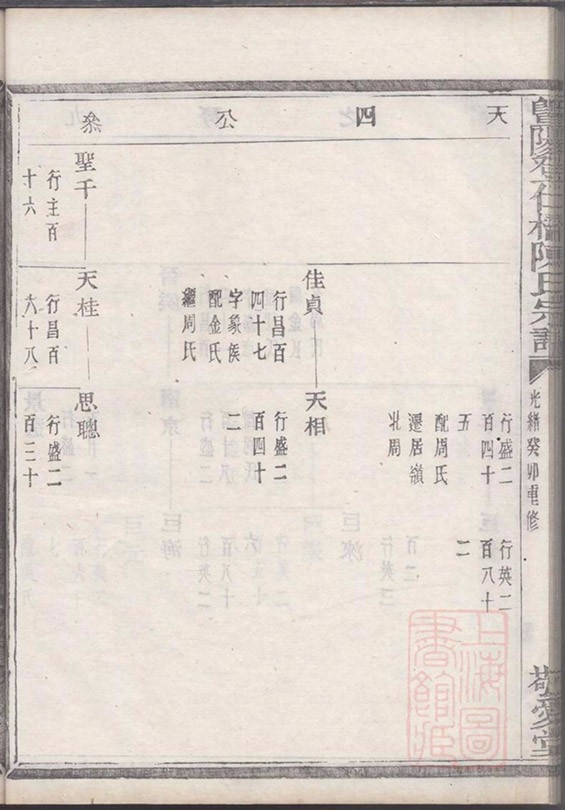 暨陽聖石橋陳氏宗譜
光緒癸卯重修
敬愛堂
天
四
公
叅
行盛二
百四十
五
配周氏
遷居嶺
北周
行英二
百八十
二
佳貞
行昌百
四十七
字象侯
配金氏
繼周氏
天相
行盛二
百四十
二
聖千
行主百
十六
天桂
行昌百
六十八
思聰
行盛二
百三十
上海圖
書館藏